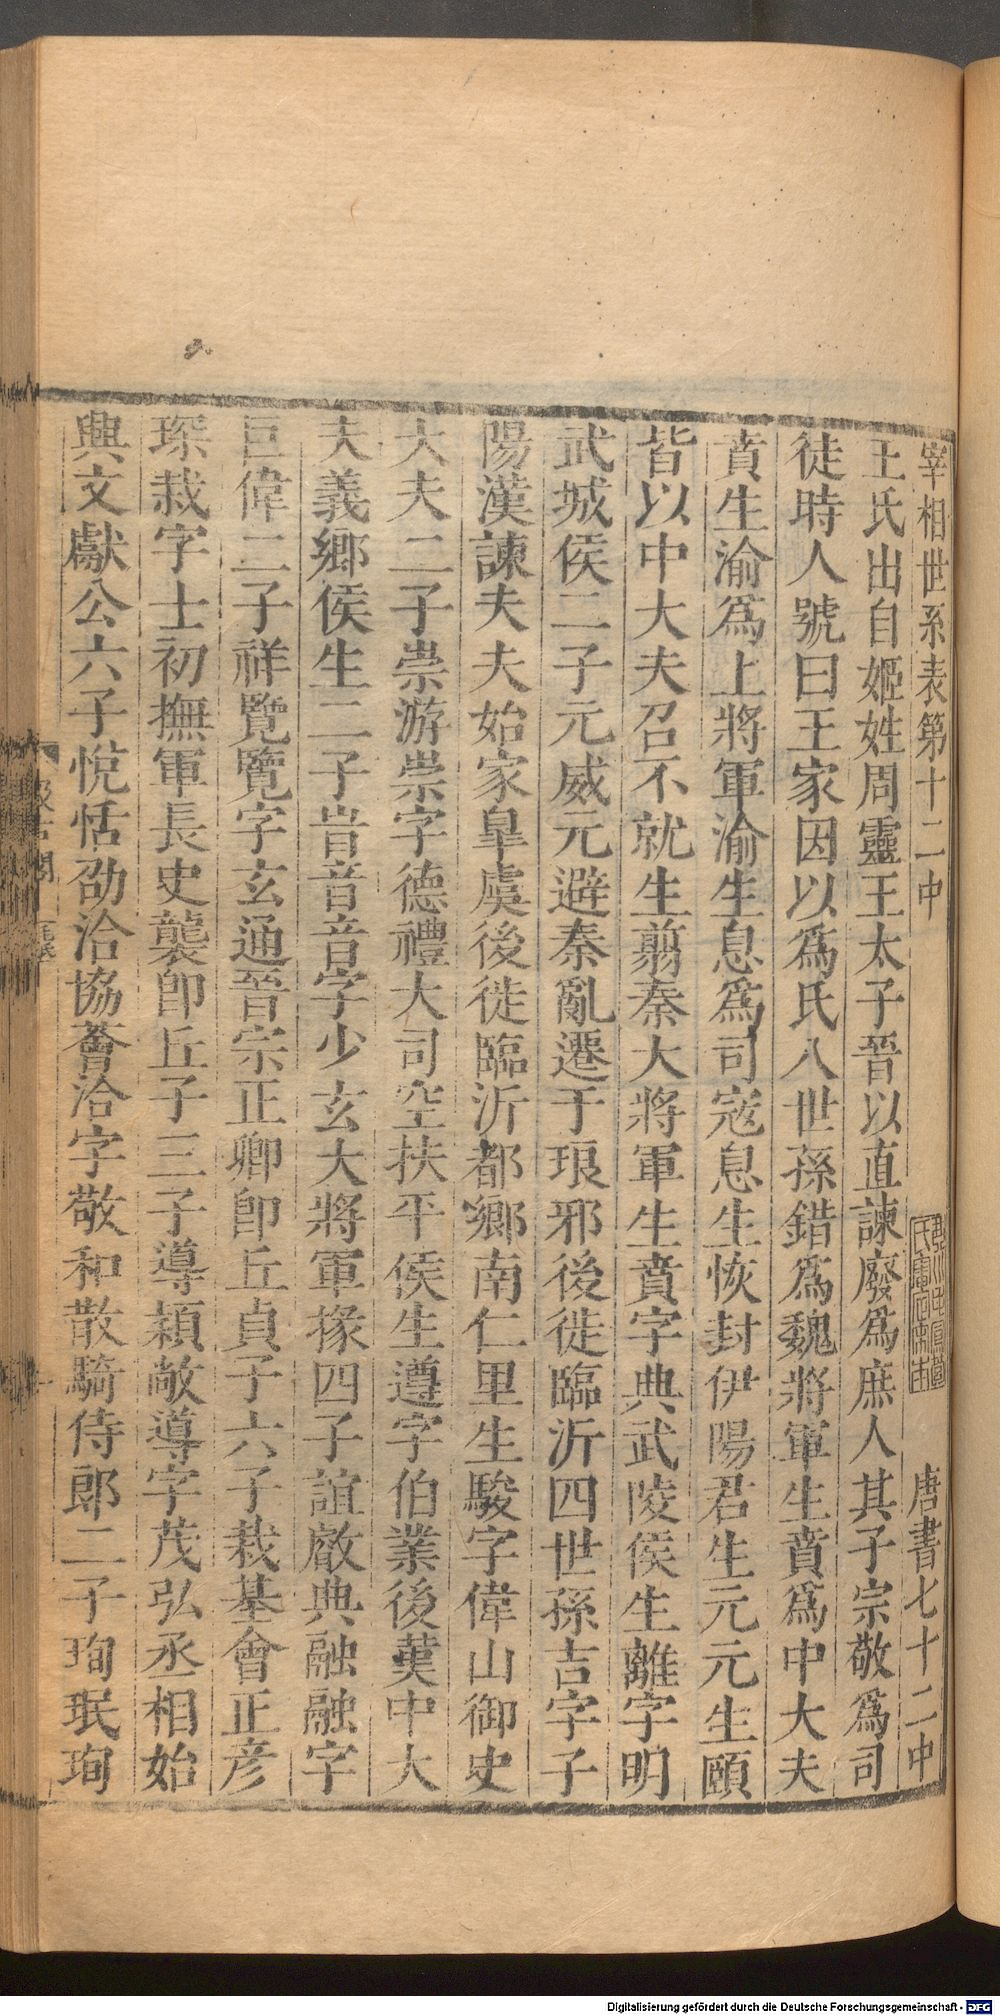 宰相世系表第十二中 唐書七十二中
王氏出自姬姓周靈王太子晉以直諫廢爲庶人其子宗敬爲司
徒時人號曰王家因以爲氏八世孫錯爲魏將軍生賁爲中大夫
賁生渝爲上將軍渝生息爲司寇息生恢封伊陽君生元元生頤
皆以中大夫召不就生翦秦大將軍生賁字典武陵侯生離字明
武城侯二子元威元避秦亂遷于琅邪後徙臨沂四世孫吉字子
陽漢諫夫夫始家皐虞後徙臨沂都鄉南仁里生駿字偉山御史
大夫二子崇游崇字德禮大司空扶平侯生遵字伯業後漢中大
夫義鄉侯生二子旹音音字少玄大將軍掾四子誼叡典融融字
巨偉二子祥覽覽字玄通晉宗正卿卽丘貞子六子裁基會正彥
琛裁字士初撫軍長史襲卽丘子三子導潁敞導字茂弘丞相始
興文獻公六子悅恬劭洽協薈洽字敬和散騎侍郎二子珣珉珣
Digitalisierung gefördert durch die Deutsche Forschungsgemeinschaft - DFG